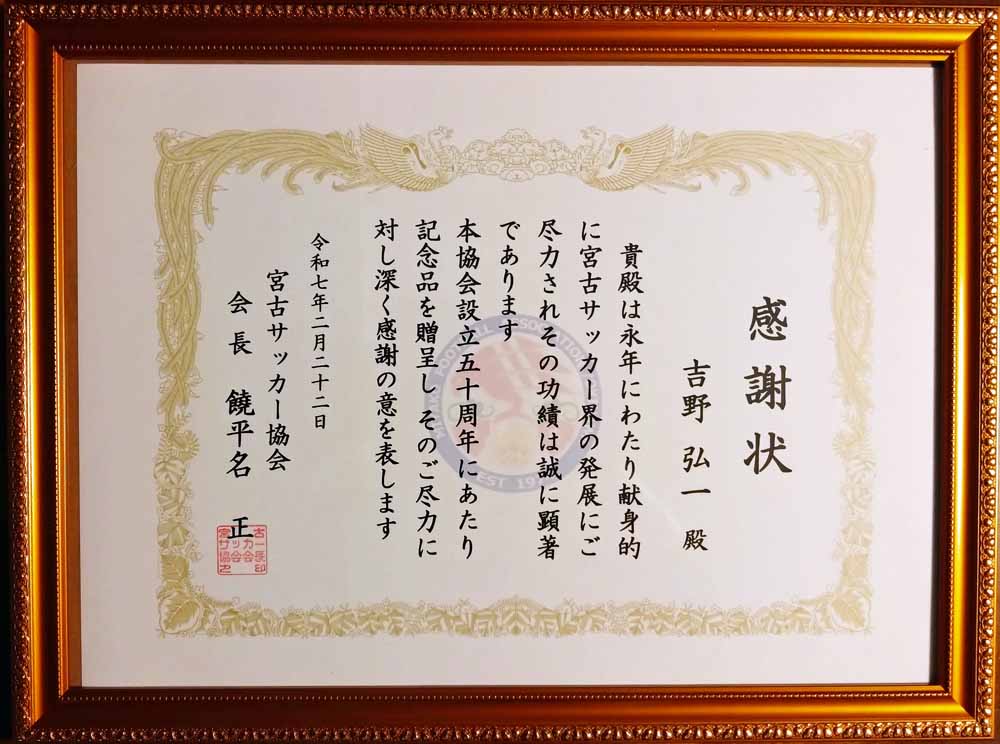 感謝状
吉野 弘一 殿
貴殿は永年にわたり献身的
に宮古サッカー界の発展にご
尽力されその功績は誠に顕著
であります
本協会設立五十周年にあたり
記念品を贈呈しそのご尽力に
対し深く感謝の意を表します
令和七年二月二十二日
宮古サッカー協会
会長 饒平名 正